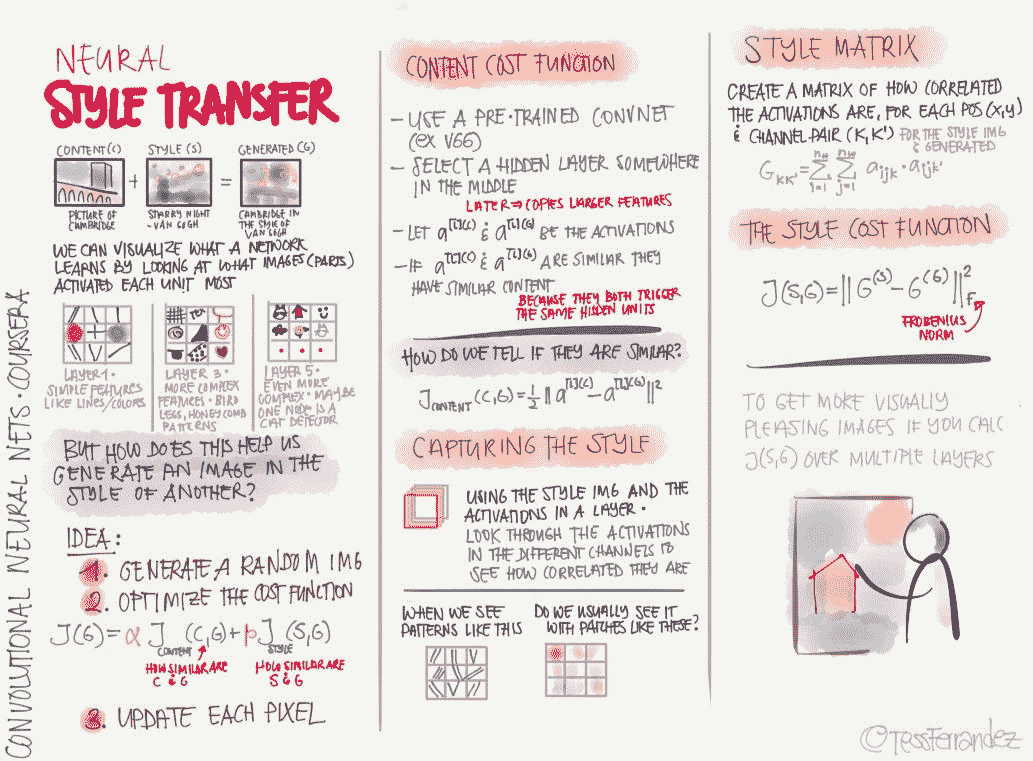 CONVOLUTIONAL NEURAL NETS · COURSERA
NEURAL
STYLE TRANSFER
CONTENT (C)
STYLE (S)
GENERATED (G)
+
=
PICTURE OF
CAMBRIDGE
STARRY NIGHT
- VAN GOGH
CAMBRIDGE IN
THE STYLE OF
VAN GOGH
WE CAN VISUALIZE WHAT A NETWORK
LEARNS BY LOOKING AT WHAT IMAGES (PARTS)
ACTIVATED EACH UNIT MOST
LAYER 1 ·
SIMPLE FEATURES
LIKE LINES/COLORS
LAYER 3 ·
MORE COMPLEX
FEATURES · BIRD
LEGS, HONEYCOMB
PATTERNS
LAYER 5 ·
EVEN MORE
COMPLEX · MAYBE
ONE NODE IS A
CAT DETECTOR
BUT HOW DOES THIS HELP US
GENERATE AN IMAGE IN THE
STYLE OF ANOTHER?
IDEA:
1. GENERATE A RANDOM IMG
2. OPTIMIZE THE COST FUNCTION
J(G) = α J_CONTENT (C,G) + β J_STYLE (S,G)
HOW SIMILAR ARE
C & G
HOW SIMILAR ARE
S & G
3. UPDATE EACH PIXEL
CONTENT COST FUNCTION
- USE A PRE-TRAINED CONVNET
(EX VGG)
- SELECT A HIDDEN LAYER SOMEWHERE
IN THE MIDDLE
LATER ⇒ COPIES LARGER FEATURES
- LET a^[l](C) & a^[l](G) BE THE ACTIVATIONS
- IF a^[l](C) & a^[l](G) ARE SIMILAR THEY
HAVE SIMILAR CONTENT
BECAUSE THEY BOTH TRIGGER
THE SAME HIDDEN UNITS
HOW DO WE TELL IF THEY ARE SIMILAR?
J_CONTENT (C,G) = 1/2 || a^[l](C) - a^[l](G) ||²
CAPTURING THE STYLE
USING THE STYLE IMG AND THE
ACTIVATIONS IN A LAYER ·
LOOK THROUGH THE ACTIVATIONS
IN THE DIFFERENT CHANNELS TO
SEE HOW CORRELATED THEY ARE
WHEN WE SEE
PATTERNS LIKE THIS
DO WE USUALLY SEE IT
WITH PATCHES LIKE THESE?
STYLE MATRIX
CREATE A MATRIX OF HOW CORRELATED
THE ACTIVATIONS ARE, FOR EACH POS (X,Y)
& CHANNEL-PAIR (K, K') FOR THE STYLE IMG
& GENERATED
G_KK' = Σ_{i=1}^{n_H} Σ_{j=1}^{n_W} a_ijk · a_ijk'
THE STYLE COST FUNCTION
J(S,G) = || G^(S) - G^(G) ||²_F
FROBENIUS
NORM
TO GET MORE VISUALLY
PLEASING IMAGES IF YOU CALC
J(S,G) OVER MULTIPLE LAYERS
@TessFerrandez